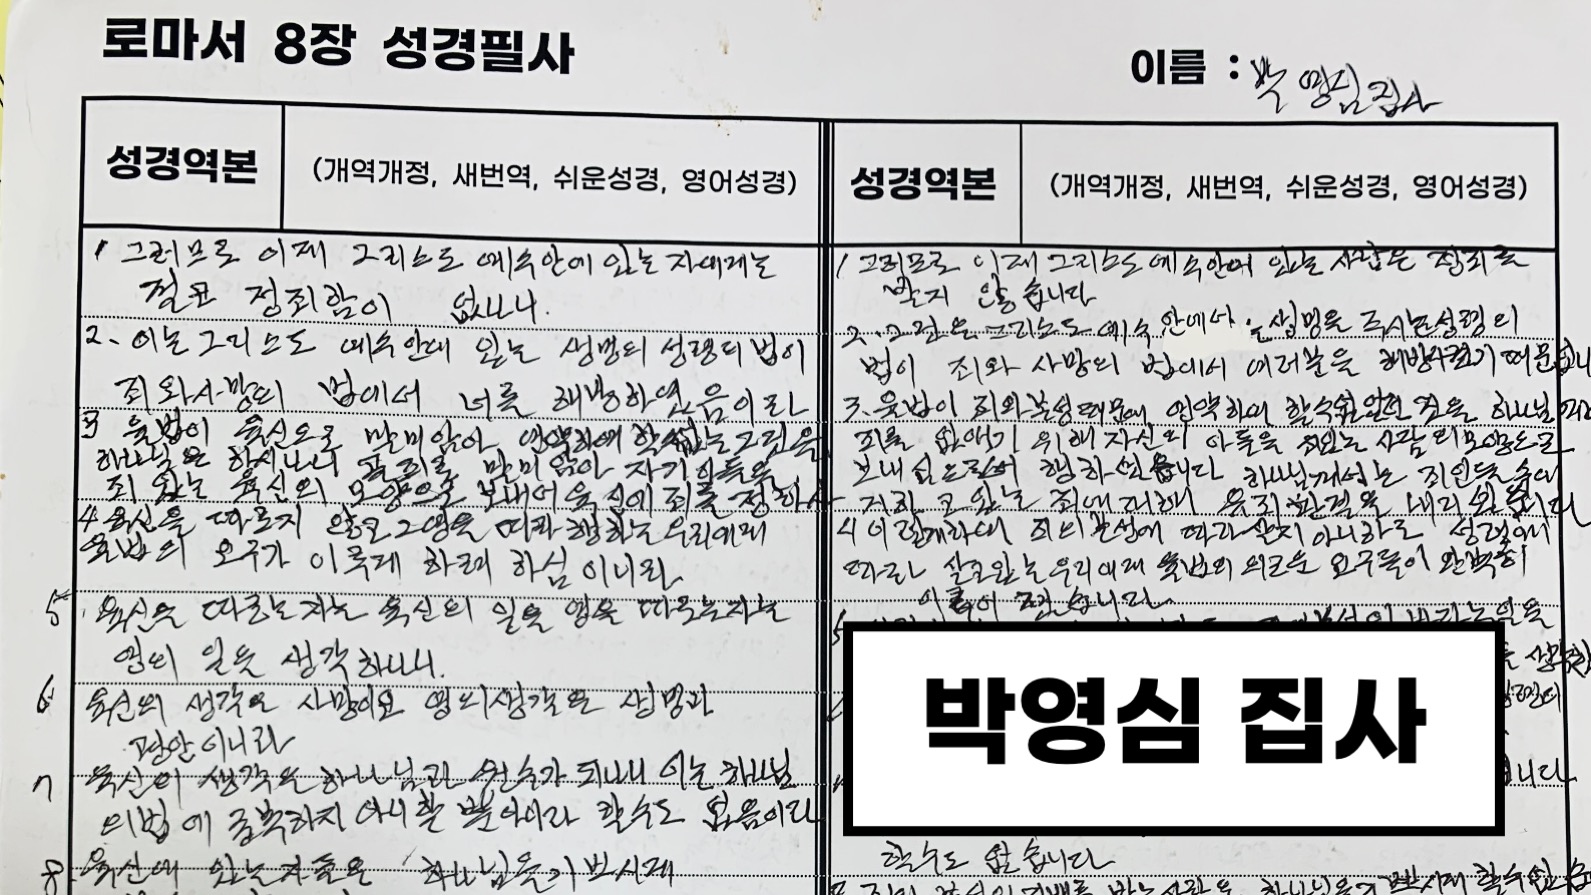 로마서 8장 성경필사
이름 : 박영심집사
성경역본 (개역개정, 새번역, 쉬운성경, 영어성경)
1 그러므로 이제 그리스도 예수안에 있는 자에게는
결코 정죄함이 없나니.
2. 이는 그리스도 예수안에 있는 생명의 성령의 법이
죄와 사망의 법에서 너를 해방하였음이라
3 율법이 육신으로 말미암아 연약하여 할수없는 그것을
하나님은 하시나니 곧 죄로 말미암아 자기 아들을
죄 있는 육신의 모양으로 보내어 육신에 죄를 정하사
4 육신을 따르지 않고 그 영을 따라 행하는 우리에게
율법의 요구가 이루어지게 하려 하심이니라
5. 육신을 따르는 자는 육신의 일을 영을 따르는 자는
영의 일을 생각하나니.
6 육신의 생각은 사망이요 영의 생각은 생명과
평안이니라
7 육신의 생각은 하나님과 원수가 되나니 이는 하나님
의 법에 굴복하지 아니할 뿐 아니라 할 수도 없음이라
8. 육신에 있는 자들은 하나님을 기쁘시게
성경역본 (개역개정, 새번역, 쉬운성경, 영어성경)
1 그러므로 이제 그리스도 예수안에 있는 사람은 정죄를
받지 않습니다
2. 그것은 그리스도 예수 안에서 생명을 주시는 성령의
법이 죄와 사망의 법에서 여러분을 해방시켰기 때문입니
3. 율법이 죄의 본성 때문에 연약하여 할 수 없었던 것을 하나님
죄를 없애기 위해 자신의 아들을 죄있는 사람의 모양으로
보내 행하셨습니다 하나님께서는 죄인들 속에
죄에 대해 유죄 판결을 내리셨습니다
4 이렇게 하여 죄의 본성에 따라 살지 아니하고 성령에
따라 살고 있는 우리에게 율법의 의로운 요구들이 완벽히
이루어 습니다.
박영심 집사
니다
할수도 없습니다